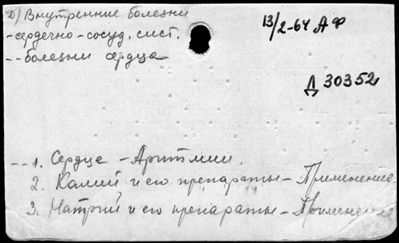 2) Внутренние болезни
13/2-64 АФ
-сердечно-сосуд. сист.
--болезни сердца
Д 30352
--1. Сердце - Аритмии.
2. Калий и его препараты - Применение
3. Натрий и его препараты - Применение